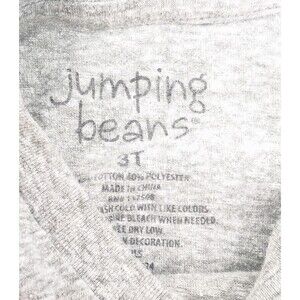 jumping
beans
3T
COTTON 40% POLYESTER
MADE IN CHINA
COLD WITH LIKE COLORS
BLEACH WHEN NEEDED.
DRY LOW.
DECORATION.